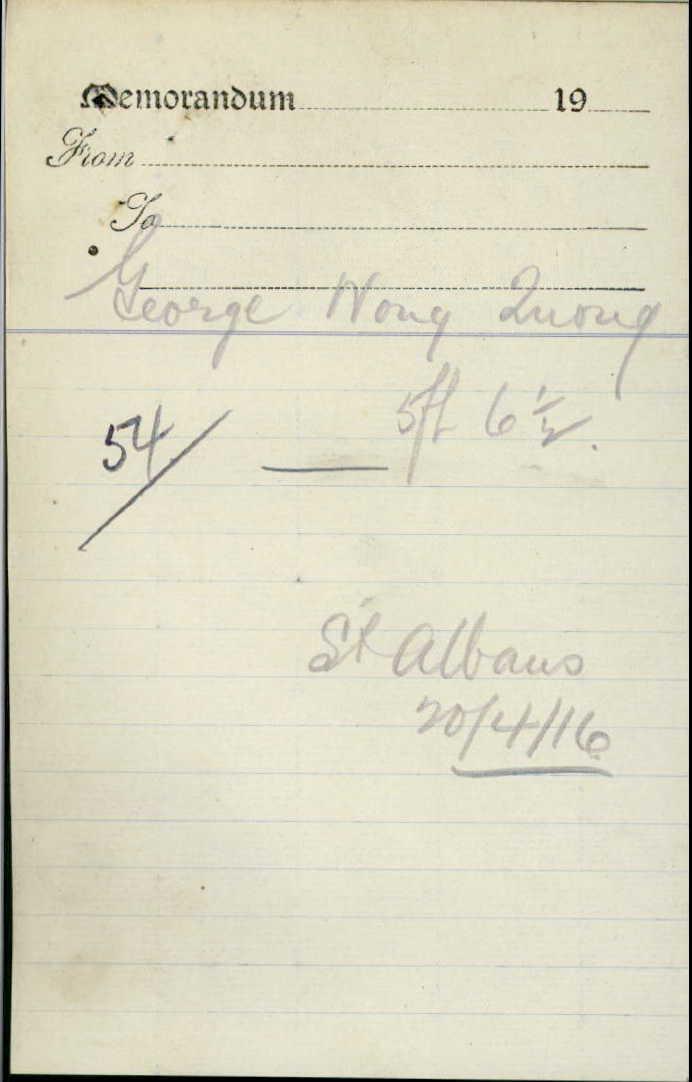 Memorandum 19
From
To
George Wong Quong
5ft 6 1/2.
54/ —
St Albans
20/4/16